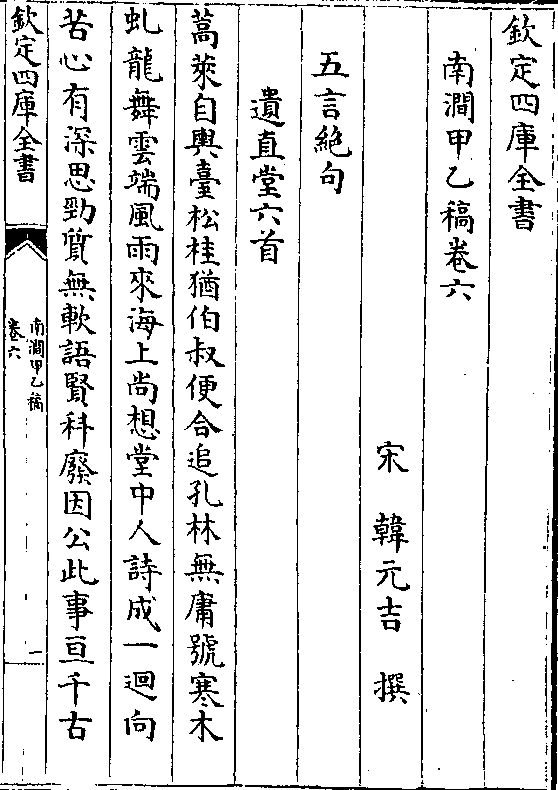 欽定四庫全書
南澗甲乙稿卷六
宋 韓元吉 撰
五言絶句
遺直堂六首
蒿萊自輿臺松桂猶伯叔便合追孔林無庸號寒木
虬龍舞雲端風雨來海上尚想堂中人詩成一迴向
苦心有深思勁質無軟語賢科廢因公此事亘千古
欽定四庫全書
南澗甲乙稿
卷六
一